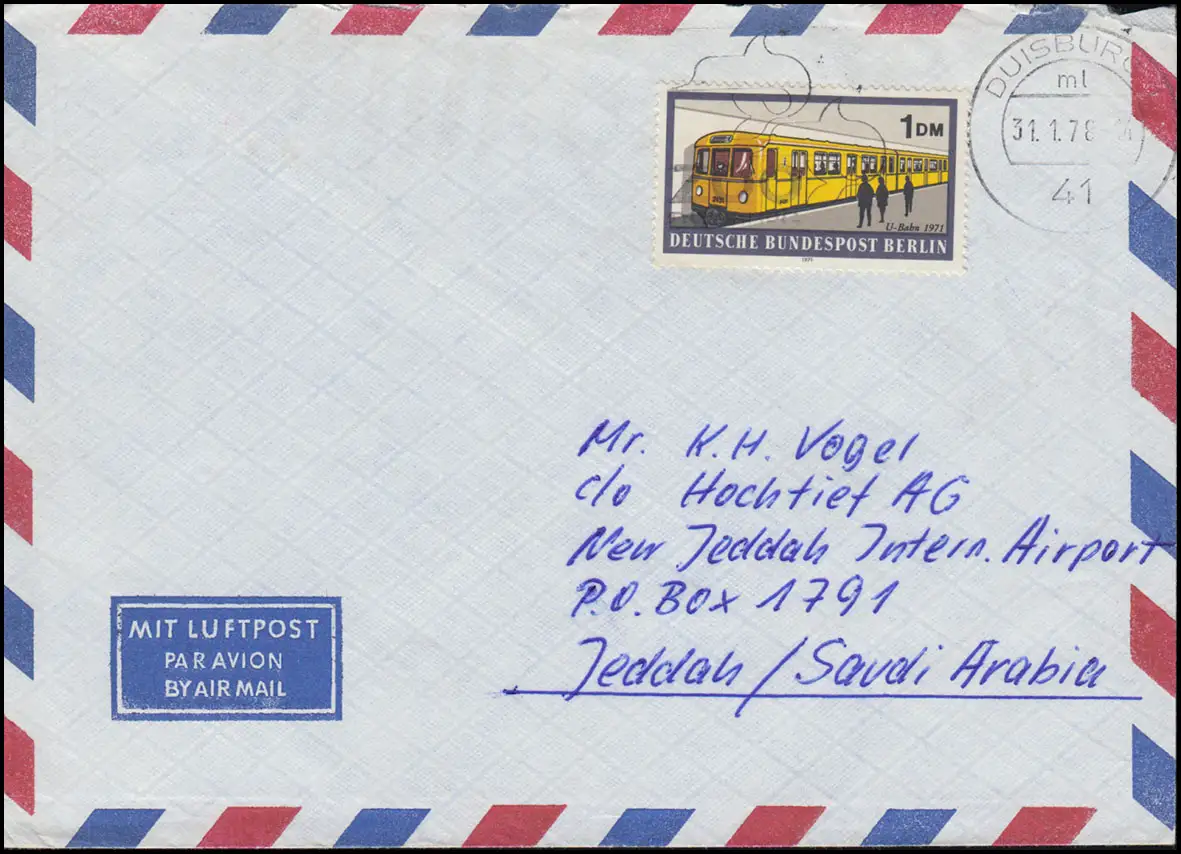 DUISBURG
ml
31. 1. 78
41
1 DM
U-Bahn 1971
DEUTSCHE BUNDESPOST BERLIN
1971
Mr. K. H. Vogel
c/o Hochtief AG
New Jeddah Intern. Airport
P.O. Box 1791
Jeddah / Saudi Arabia
MIT LUFTPOST
PAR AVION
BY AIR MAIL